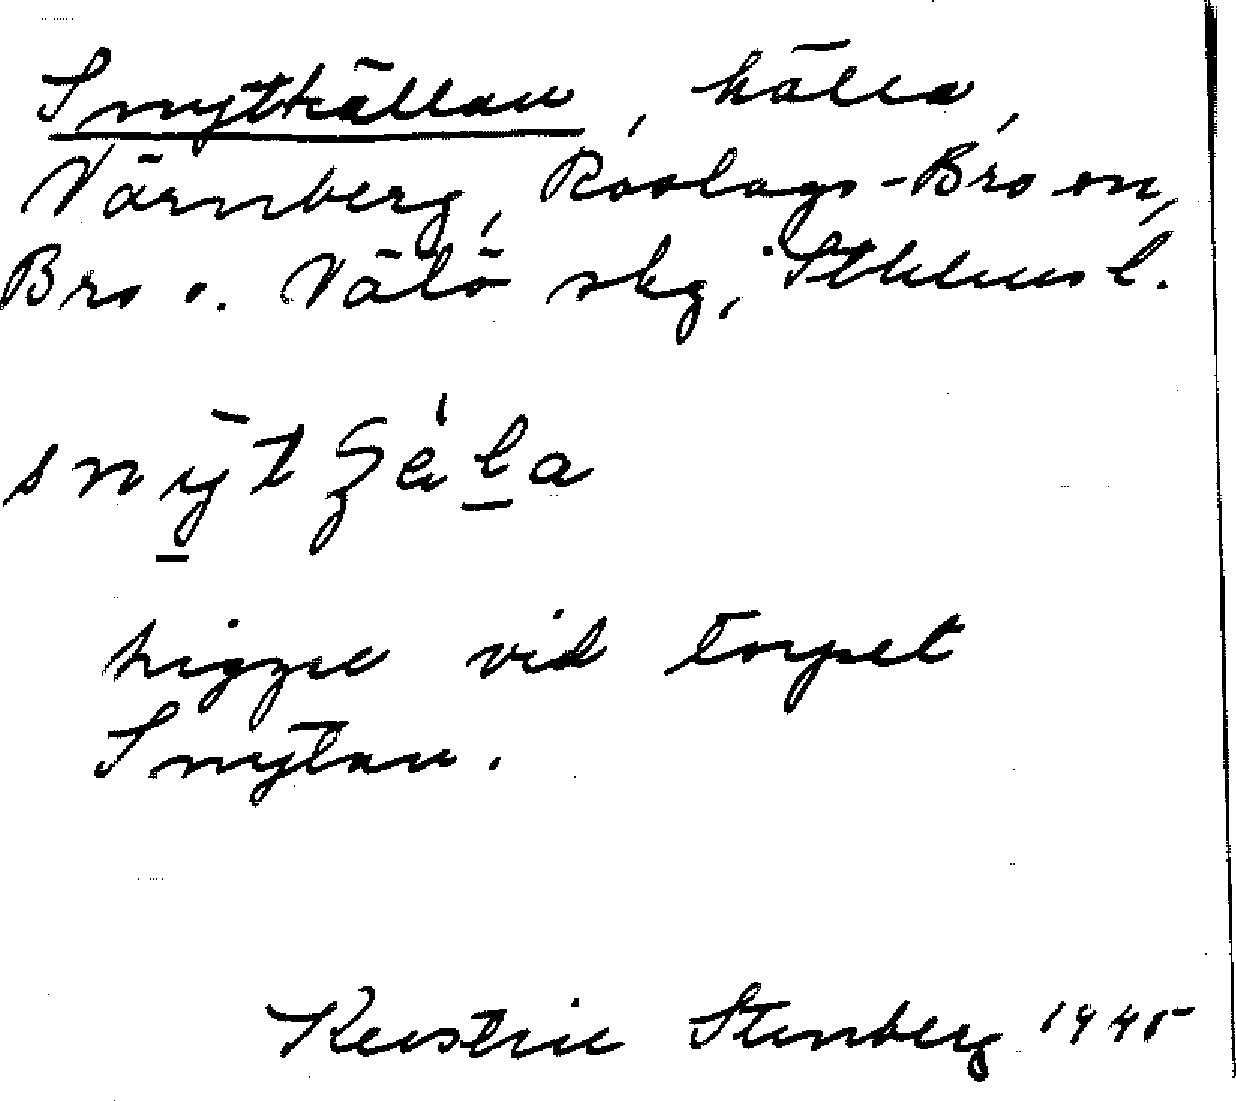 Snytkällan, källa,
Värnberg, Roslags-Bro sn,
Bro o. Vätö skg, Sthlms l.
ligger vid torpet
Snytan.
Kerstin Stenberg 1945